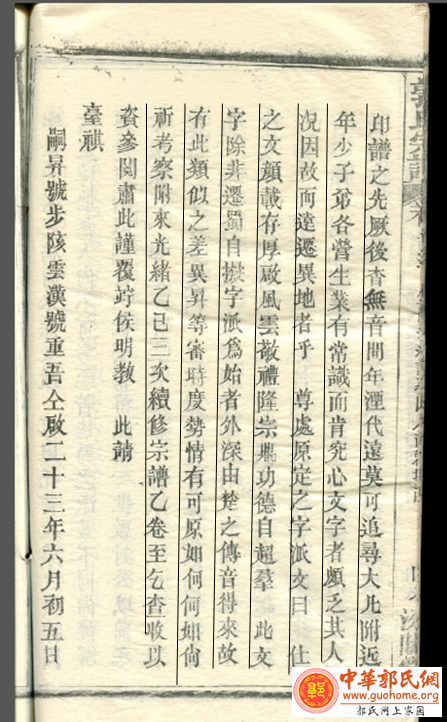 印譜之先厥後杳無音間年湮代遠莫可追尋大凡附近
年少子弟各營生業有常識而肯究心文字者頗乏其人
況因故而遠遷異地者乎 尊處原定之字派文曰 仕
之文顏載存厚啟風雲敬禮隆宗鼎功德自超羣 此文
字除非遷蜀自撥字派爲始者外深由楚之傳音得來故
有此類似之差異昇等審時度勢情有可原如何何如尙
祈考察附來光緒乙巳三次續修宗譜乙卷至乞查收以
資參閱肅此謹覆竚侯明教 此請
臺祺
嗣昇號步陔雲漢號重吾仝啟二十三年六月初五日
中華郭氏網
www.guohome.org
郭氏网上家園